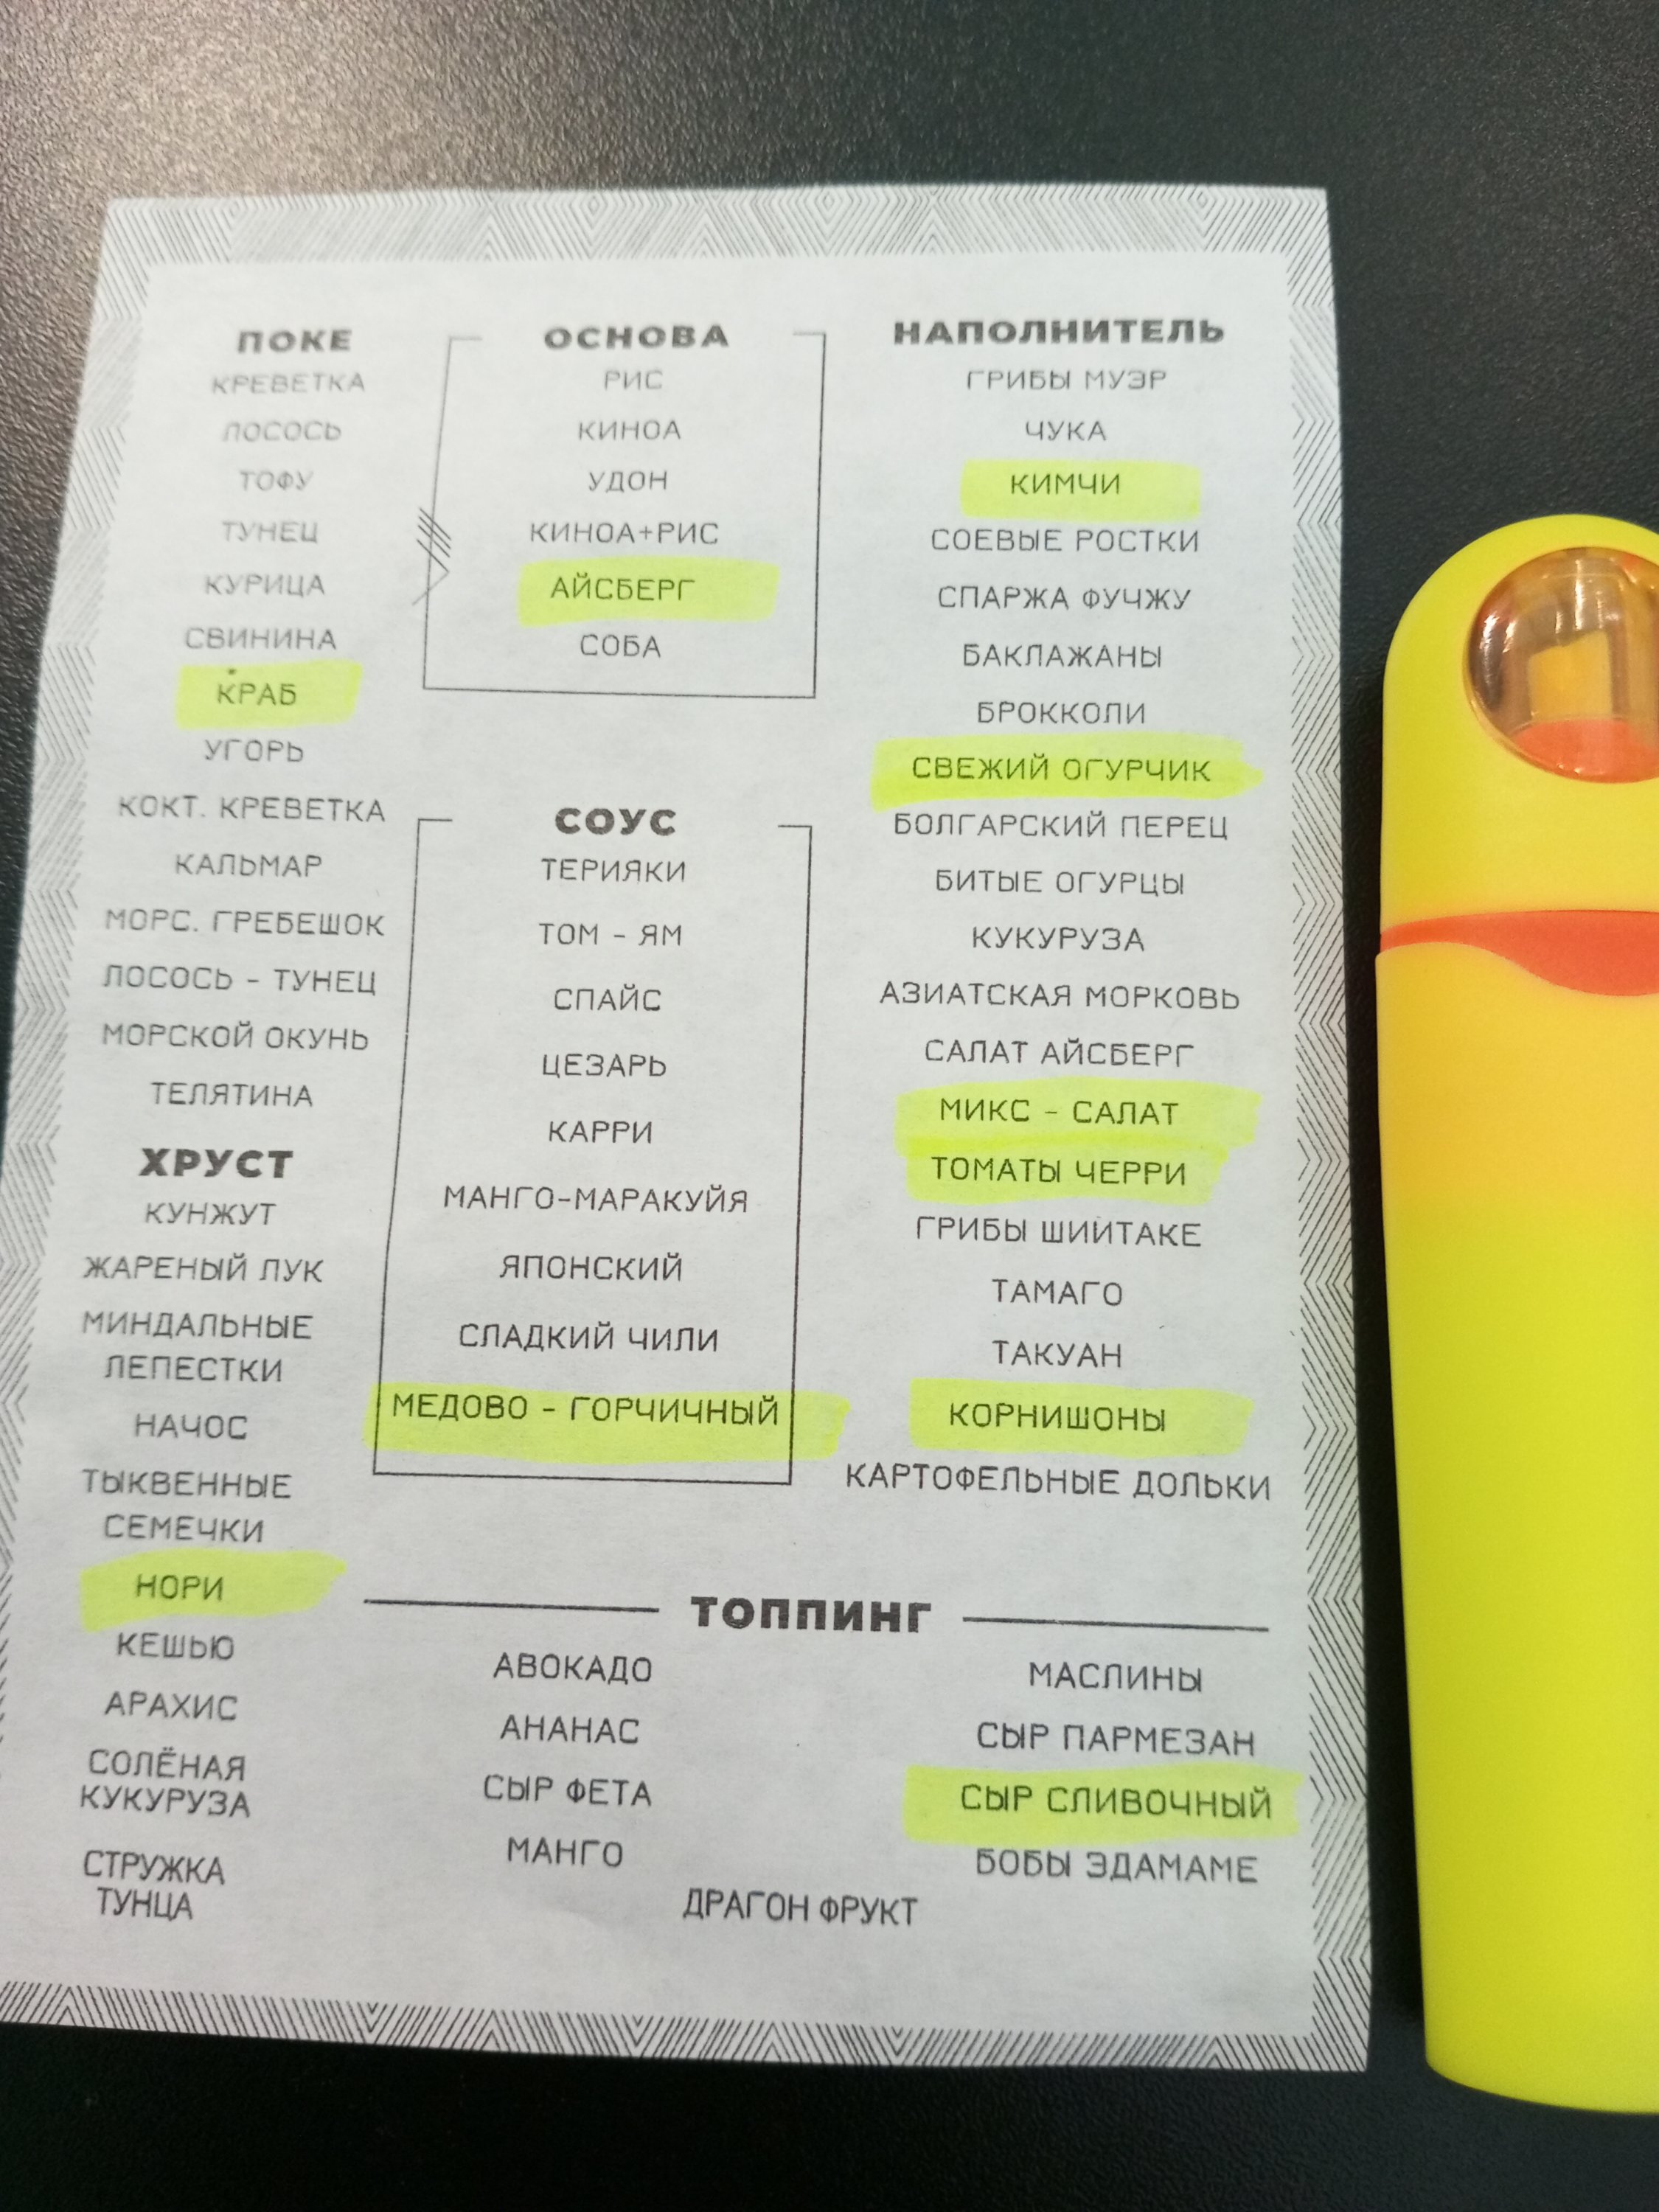 ПОКЕ
КРЕВЕТКА
ЛОСОСЬ
ТОФУ
ТУНЕЦ
КУРИЦА
СВИНИНА
КРАБ
УГОРЬ
КОКТ. КРЕВЕТКА
КАЛЬМАР
МОРС. ГРЕБЕШОК
ЛОСОСЬ - ТУНЕЦ
МОРСКОЙ ОКУНЬ
ТЕЛЯТИНА
ХРУСТ
КУНЖУТ
ЖАРЕНЫЙ ЛУК
МИНДАЛЬНЫЕ
ЛЕПЕСТКИ
НАЧОС
ТЫКВЕННЫЕ
СЕМЕЧКИ
НОРИ
КЕШЬЮ
АРАХИС
СОЛЁНАЯ
КУКУРУЗА
СТРУЖКА
ТУНЦА
ОСНОВА
РИС
КИНОА
УДОН
КИНОА+РИС
АЙСБЕРГ
СОБА
СОУС
ТЕРИЯКИ
ТОМ - ЯМ
СПАЙС
ЦЕЗАРЬ
КАРРИ
МАНГО-МАРАКУЙЯ
ЯПОНСКИЙ
СЛАДКИЙ ЧИЛИ
МЕДОВО - ГОРЧИЧНЫЙ
НАПОЛНИТЕЛЬ
ГРИБЫ МУЭР
ЧУКА
КИМЧИ
СОЕВЫЕ РОСТКИ
СПАРЖА ФУЧЖУ
БАКЛАЖАНЫ
БРОККОЛИ
СВЕЖИЙ ОГУРЧИК
БОЛГАРСКИЙ ПЕРЕЦ
БИТЫЕ ОГУРЦЫ
КУКУРУЗА
АЗИАТСКАЯ МОРКОВЬ
САЛАТ АЙСБЕРГ
МИКС - САЛАТ
ТОМАТЫ ЧЕРРИ
ГРИБЫ ШИИТАКЕ
ТАМАГО
ТАКУАН
КОРНИШОНЫ
КАРТОФЕЛЬНЫЕ ДОЛЬКИ
ТОППИНГ
АВОКАДО
АНАНАС
СЫР ФЕТА
МАНГО
МАСЛИНЫ
СЫР ПАРМЕЗАН
СЫР СЛИВОЧНЫЙ
БОБЫ ЭДАМАМЕ
ДРАГОН ФРУКТ